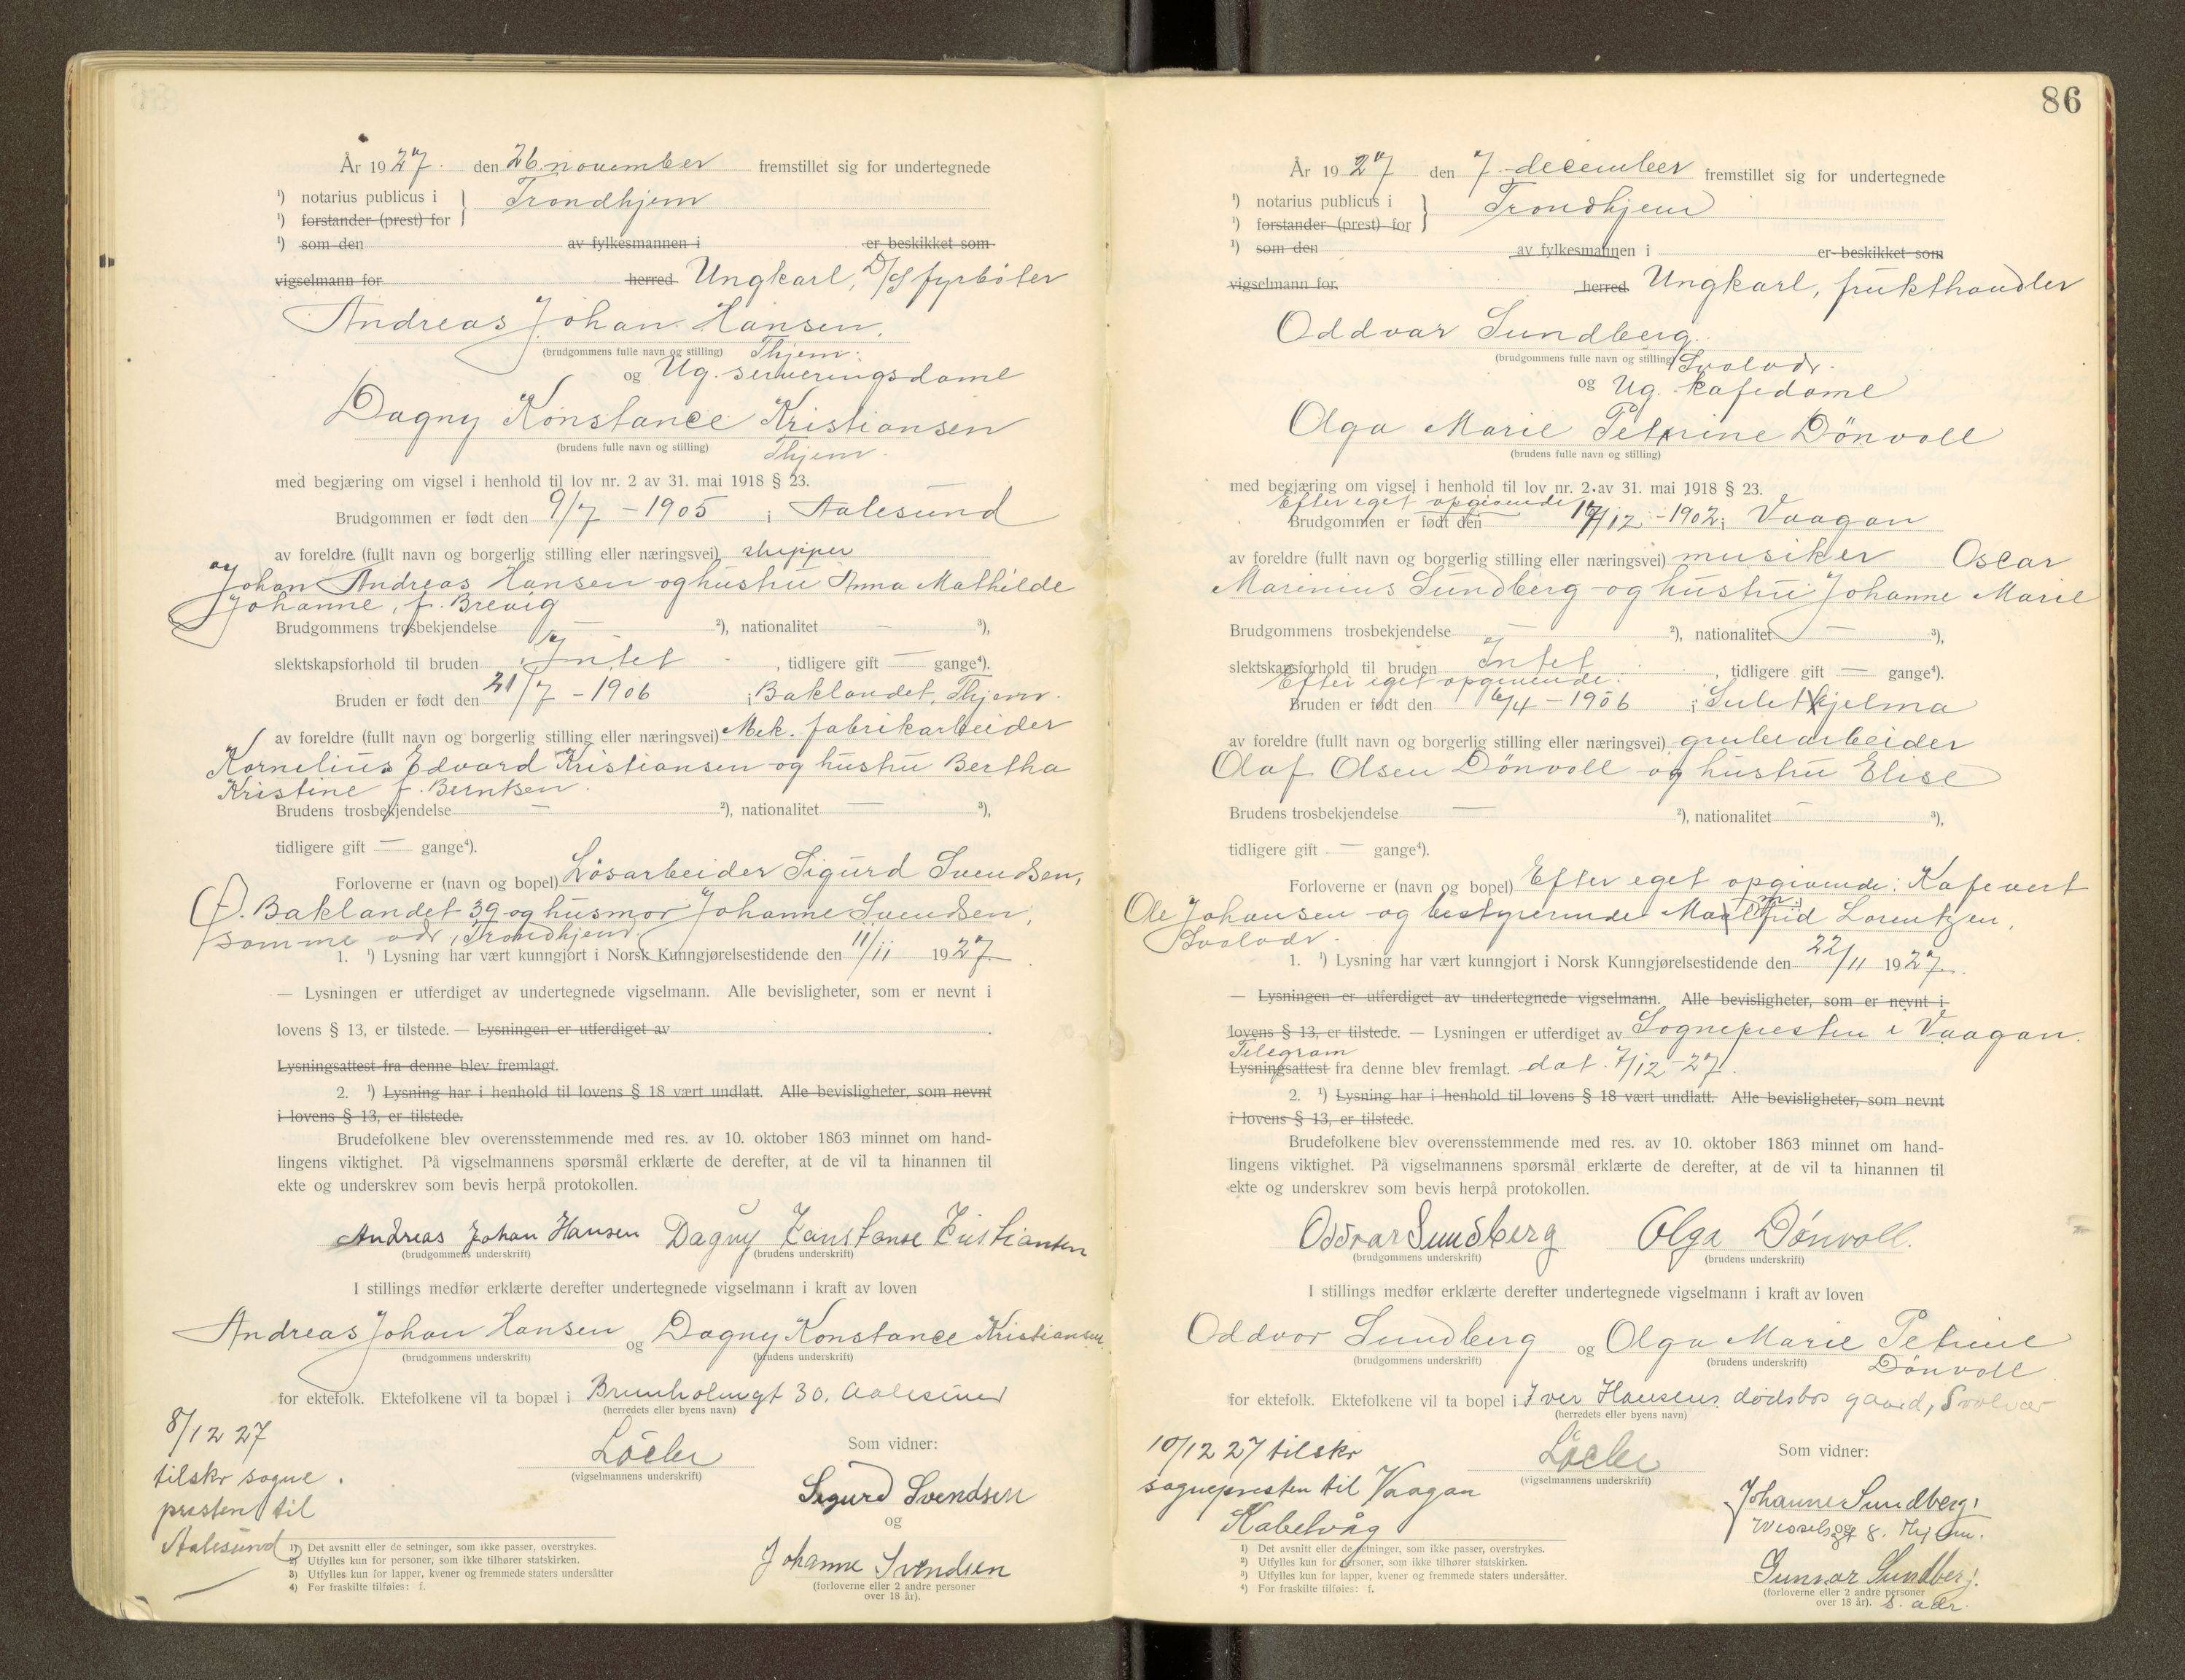 År 1927. den 26 november fremstillet sig for undertegnede
¹) notarius publicus i } Trondhjem
¹) forstander (prest) for
¹) som den av fylkesmannen i er beskikket som
vigselmann for herred Ungkarl, D/S fyrbøter
Andreas Johan Hansen,
(brudgommens fulle navn og stilling) Thjem.
og Ug. serveringsdame
Dagny Konstance Kristiansen
(brudens fulle navn og stilling) Thjem.
med begjæring om vigsel i henhold til lov nr. 2 av 31. mai 1918 § 23.
Brudgommen er født den 9/7 - 1905 i Aalesund
av foreldre (fullt navn og borgerlig stilling eller næringsvei) skipper
Johan Andreas Hansen og hustru Anna Mathilde
Johanne, f. Brevig
Brudgommens trosbekjendelse — ²), nationalitet — ³),
slektskapsforhold til bruden Intet, tidligere gift — gange⁴).
Bruden er født den 21/7 - 1906 i Baklandet, Thjem.
av foreldre (fullt navn og borgerlig stilling eller næringsvei) Mek. fabrikarbeider
Kornelius Edvard Kristiansen og hustru Bertha
Kristine f. Berntsen.
Brudens trosbekjendelse — ²), nationalitet — ³),
tidligere gift — gange⁴).
Forloverne er (navn og bopel) Løsarbeider Sigurd Svendsen,
Ø. Baklandet 39 og husmor Johanne Svendsen,
samme adr, Trondhjem.
1. ¹) Lysning har vært kunngjort i Norsk Kunngjørelsestidende den 11/11 1927.
— Lysningen er utferdiget av undertegnede vigselmann. Alle bevisligheter, som er nevnt i
lovens § 13, er tilstede. — Lysningen er utferdiget av
Lysningsattest fra denne blev fremlagt.
2. ¹) Lysning har i henhold til lovens § 18 vært undlatt. Alle bevisligheter, som nevnt
i lovens § 13, er tilstede.
Brudefolkene blev overensstemmende med res. av 10. oktober 1863 minnet om hand-
lingens viktighet. På vigselmannens spørsmål erklærte de derefter, at de vil ta hinannen til
ekte og underskrev som bevis herpå protokollen.
Andreas Johan Hansen Dagny Konstanse Kristiansen
(brudgommens underskrift) (brudens underskrift)
I stillings medfør erklærte derefter undertegnede vigselmann i kraft av loven
Andreas Johan Hansen og Dagny Konstance Kristiansen
(brudgommens underskrift) (brudens underskrift)
for ektefolk. Ektefolkene vil ta bopæl i Brunholmgt 30, Aalesund
(herredets eller byens navn)
8/12 27
tilskr sogne
presten til
Aalesund
(vigselmannens underskrift)
Som vidner:
Sigurd Svendsen
og
Johanne Svendsen
(forloverne eller 2 andre personer
over 18 år).
1) Det avsnitt eller de setninger, som ikke passer, overstrykes.
2) Utfylles kun for personer, som ikke tilhører statskirken.
3) Utfylles kun for lapper, kvener og fremmede staters undersåtter
4) For fraskilte tilføies: f.
86
År 1927 den 7. december fremstillet sig for undertegnede
¹) notarius publicus i } Trondhjem
¹) forstander (prest) for
¹) som den av fylkesmannen i er beskikket som
vigselmann for herred Ungkarl, frukthandler
Oddvar Sundberg.
(brudgommens fulle navn og stilling) Svolvær.
og Ug. kafedame
Olga Marie Petrine Dönvoll
(brudens fulle navn og stilling)
med begjæring om vigsel i henhold til lov nr. 2 av 31. mai 1918 § 23.
Efter eget opgivende
Brudgommen er født den /12 - 1902 i Vaagan
av foreldre (fullt navn og borgerlig stilling eller næringsvei) musiker Oscar
Marinius Sundberg og hustru Johanne Marie
Brudgommens trosbekjendelse — ²), nationalitet — ³),
slektskapsforhold til bruden Intet, tidligere gift — gange⁴).
Efter eget opgivende.
Bruden er født den 6/4 - 1906 i Suletkjelma
av foreldre (fullt navn og borgerlig stilling eller næringsvei) grubearbeider
Olaf Olsen Dönvoll og hustru Elise
Brudens trosbekjendelse — ²), nationalitet — ³),
tidligere gift — gange⁴).
Forloverne er (navn og bopel) Efter eget opgivende: Kafevert
Ole Johansen og bestyrerinde Malmfrid Lorentzen,
Svolvær.
1. ¹) Lysning har vært kunngjort i Norsk Kunngjørelsestidende den 22/11 1927.
— Lysningen er utferdiget av undertegnede vigselmann. Alle bevisligheter, som er nevnt i
lovens § 13, er tilstede. — Lysningen er utferdiget av Sognepresten i Vaagan.
Telegram
Lysningsattest fra denne blev fremlagt. dat. 7/12-27.
2. ¹) Lysning har i henhold til lovens § 18 vært undlatt. Alle bevisligheter, som nevnt
i lovens § 13, er tilstede.
Brudefolkene blev overensstemmende med res. av 10. oktober 1863 minnet om hand-
lingens viktighet. På vigselmannens spørsmål erklærte de derefter, at de vil ta hinannen til
ekte og underskrev som bevis herpå protokollen.
Oddvar Sundberg Olga Dønvoll.
(brudgommens underskrift) (brudens underskrift)
I stillings medfør erklærte derefter undertegnede vigselmann i kraft av loven
Oddvar Sundberg og Olga Marie Petrine
(brudgommens underskrift) (brudens underskrift) Dönvoll
for ektefolk. Ektefolkene vil ta bopel i Iver Hansens dødsbos gaard, Svolvær
(herredets eller byens navn)
10/12 27 tilskr
sognepresten til Vaagan
Kabelvåg
(vigselmannens underskrift)
Som vidner:
Johanne Sundberg,
og
Wesselsgt 8. Thjem.
Gunnar Sundberg.
(forloverne eller 2 andre personer
over 18 år). s. adr.
1) Det avsnitt eller de setninger, som ikke passer, overstrykes.
2) Utfylles kun for personer, som ikke tilhører statskirken.
3) Utfylles kun for lapper, kvener og fremmede staters undersåtter.
4) For fraskilte tilføies: f.